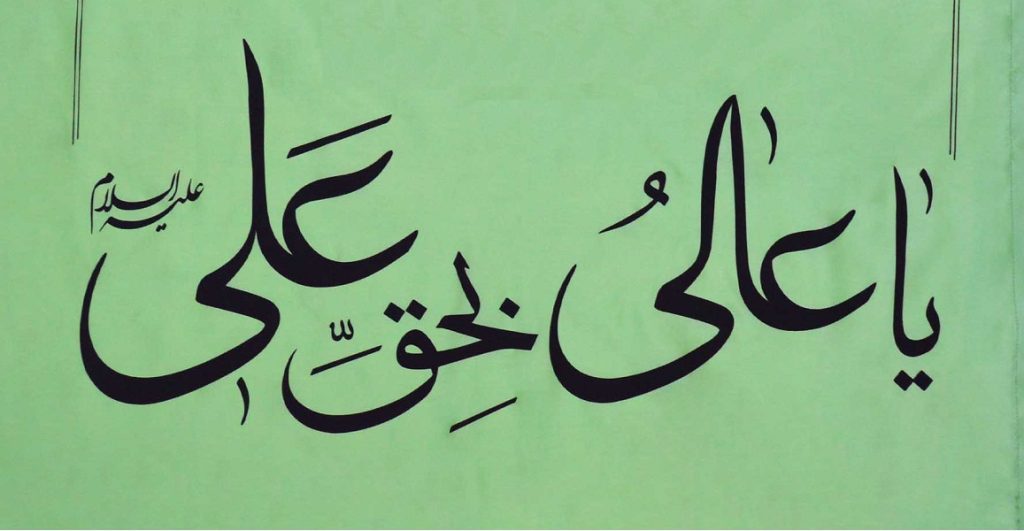 یا عالیُ بِحَقِّ عَلی علیه السلام